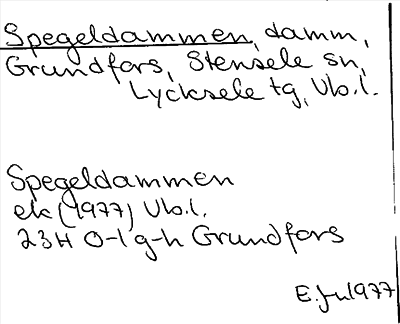 Spegeldammen, damm,
Grundfors, Stensele sn,
Lycksele tg, Vb.l.
Spegeldammen
ek (1977) Vb.l.
23H 0-1 g-h Grundfors
1977